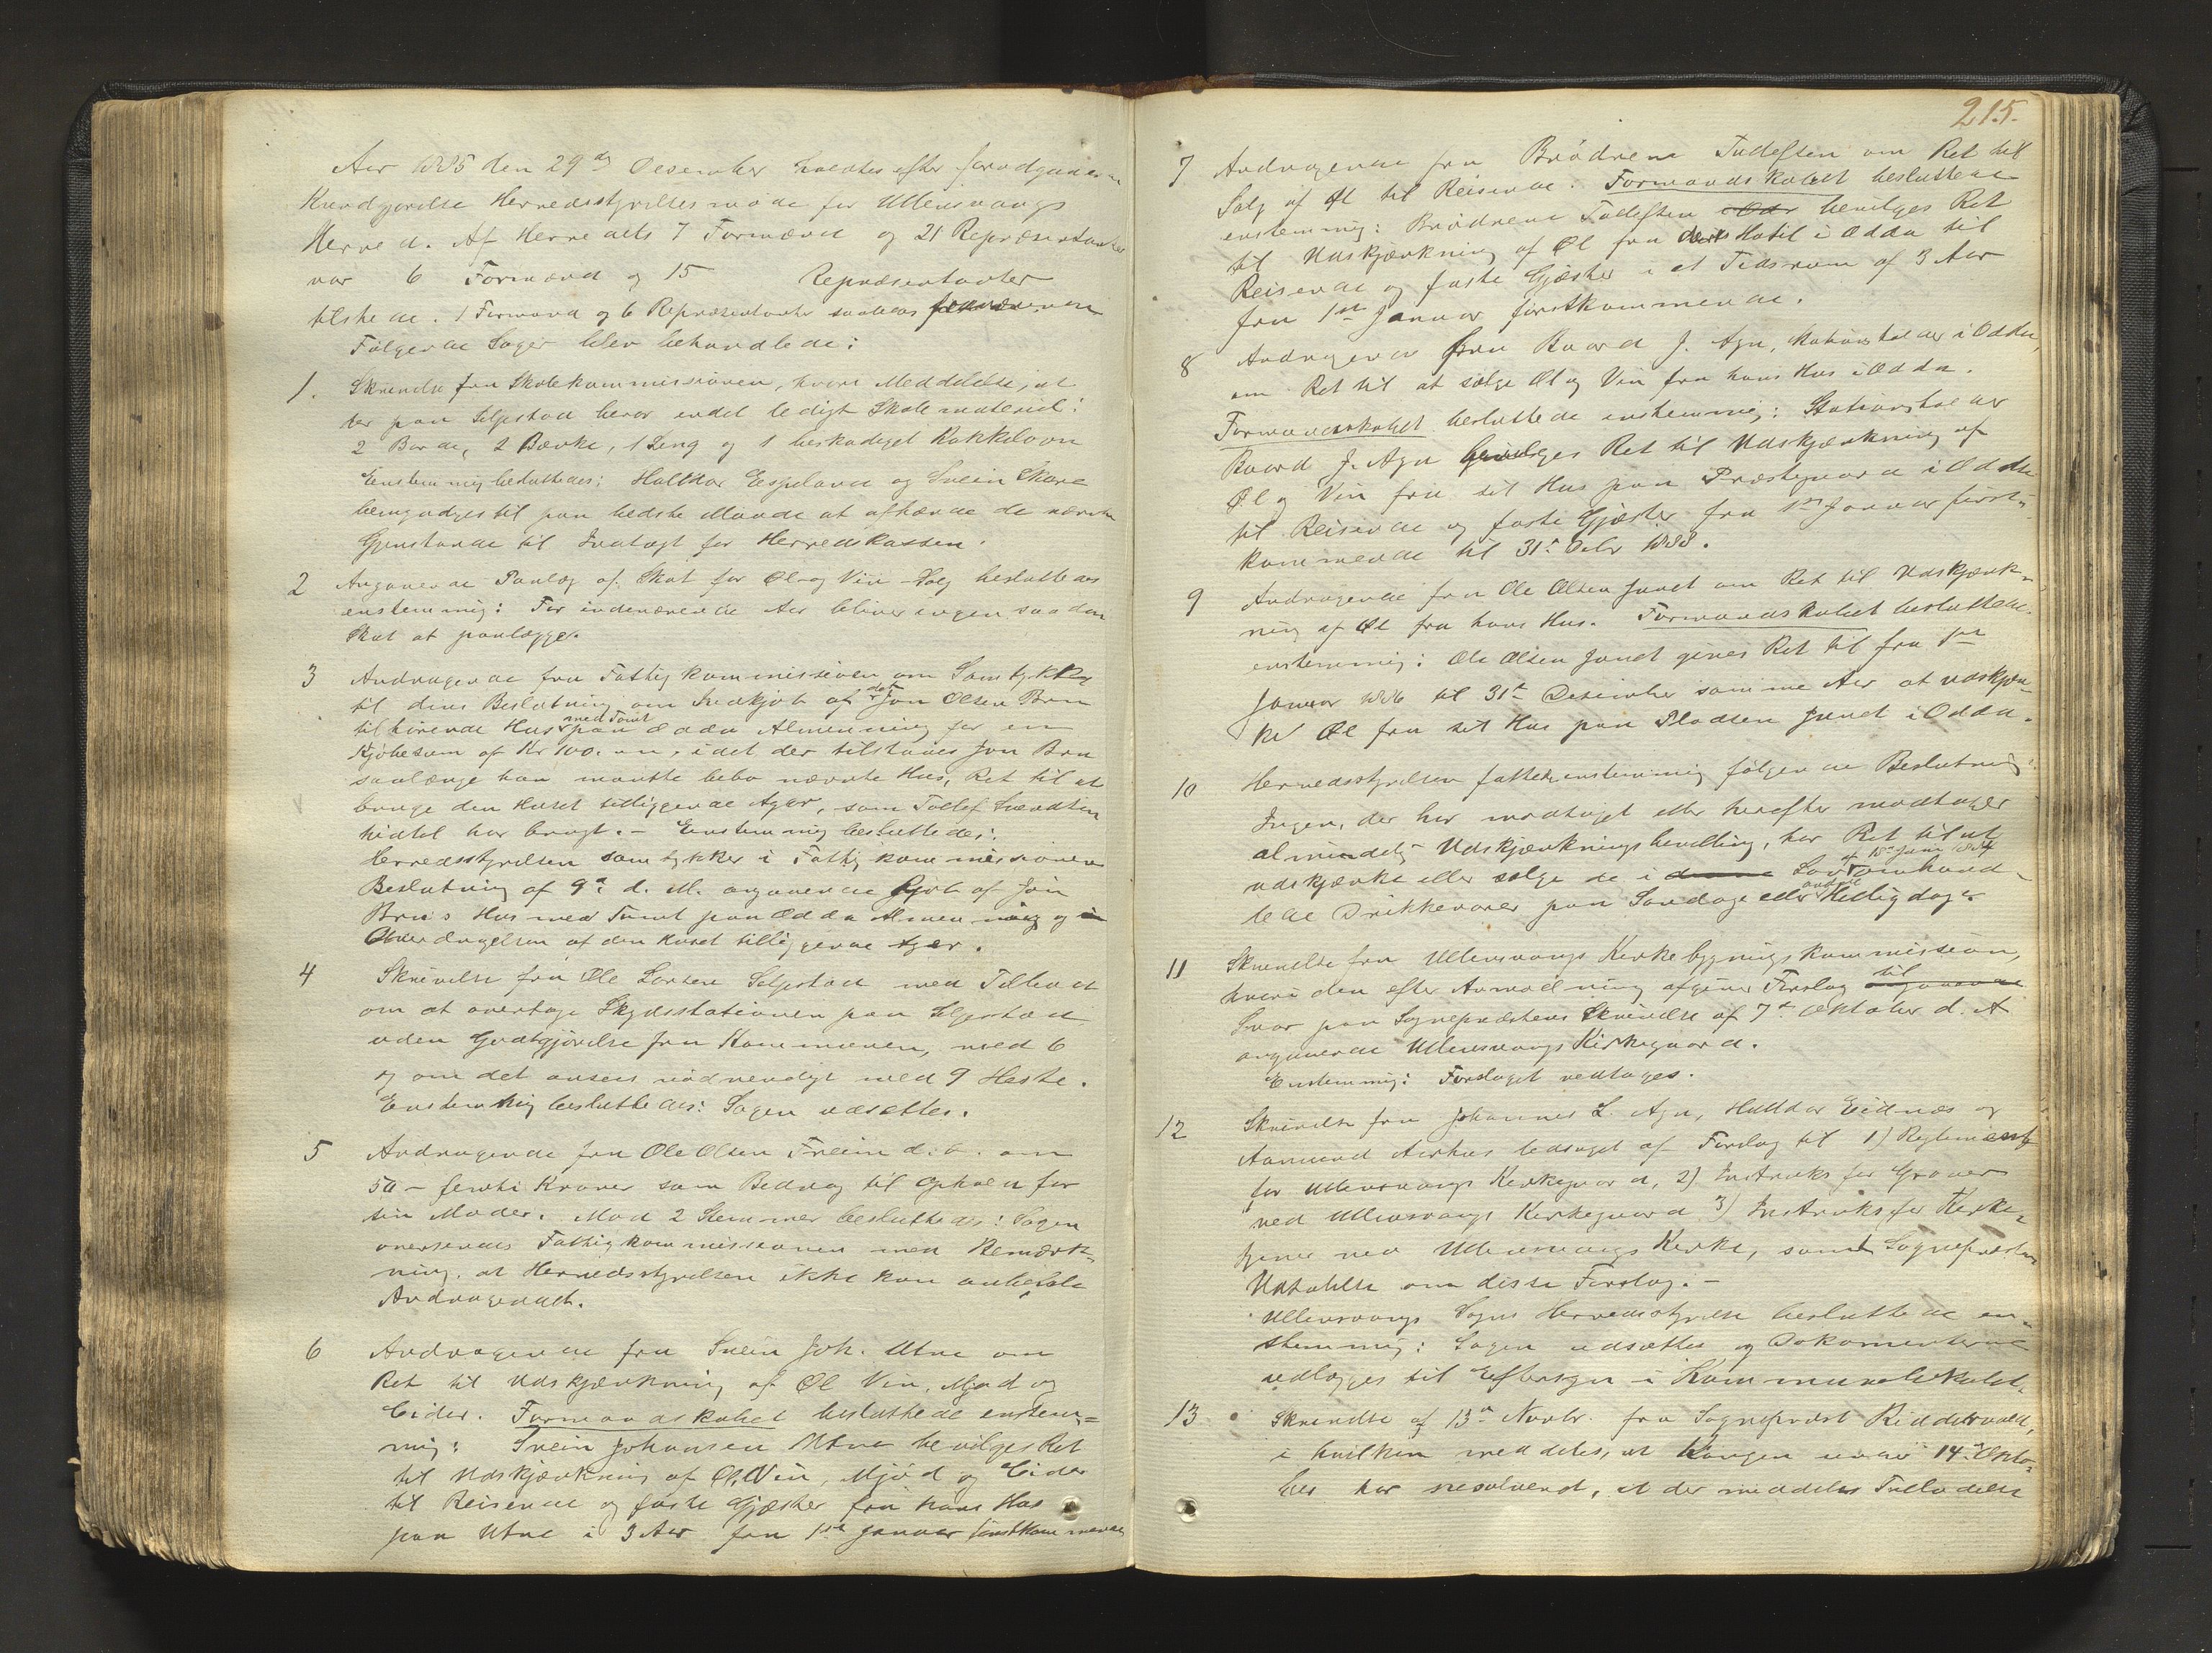 Aar 1885 den 29de Desember holdtes efter forudgaaende
Kundgjørelse Herredsstyrelsesmøde for Ullensvangs
Herred. Af Herredets 7 Formænd og 21 Repræsentanter
var 6 Formænd og 15 Repræsentanter
tilstede. 1 Formand og 6 Repræsentanter saaledes fraværende
Følgende Sager blev behandlede:
1. Skrivelse fra Skolekommissionen, hvori Meddelelse, at
der paa Seljestad beror endel ledigt Skolemateriel:
2 Borde, 2 Bænke, 1 Seng og 1 beskadiget Kakkelovn
Enstemmig besluttedes: Halldor Espeland og Svein Skare
bemyndiges til paa bedste Maade at afhænde de nævnte
Gjenstande til Indtægt for Herredskassen.
2 Angaaende Paalæg af Skat for Øl- og Vin-Salg besluttedes
enstemmig: For indeværende Aar bliver ingen saadan
Skat at paalægge.
3 Andragende fra Fattigkommissionen om Samtykke
til dens Beslutning om Indkjøb af det Jon Olsen Bru
tilhørende Hus med Tomt paa Odda Almenning for en
Kjøbesum af Kr 100.00, idet der tilstaaes Jon Bru
saalænge han maatte bebo nævnte Hus, Ret til at
bruge den Huset tilliggende Ager, som Tollef
hidtil har brugt. – Enstemmig besluttedes:
Herredsstyrelsen samtykker i Fattigkommissionens
Beslutning af 9de d. M. angaaende Kjøb af Jon
Bru's Hus med Tomt paa Odda Almenning og
Overdragelsen af den Huset tilliggende Ager.
4 Skrivelse fra Ole Larsen Seljestad med Tilbud
om at overtage Skydsstationen paa Seljestad
uden Godtgjørelse fra Kommunen, med 6
og om det ansees nødvendigt med 9 Heste.
Enstemmig besluttedes: Sagen udsættes.
5 Andragende fra Ole Olsen Freim d. . om
50 – femti Kroner som Bidrag til Ophold for
sin Moder. Mod 2 Stemmer besluttedes: Sagen
oversendes Fattigkommissionen med Bemærk-
ning, at Herredsstyrelsen ikke kan anbefale
Andragendet.
6 Andragende fra Svein Joh. Utne om
Ret til Udskjænkning af Øl Vin, Mjød og
Cider. Formandskabet besluttede enstem=
mig: Svein Johansen Utne bevilges Ret
til Udskjænkning af Øl, Vin, Mjød og Cider
til Reisende og faste Gjæster fra hans Hus
paa Utne i 3 Aar fra 1ste Januar førstkommende
215.
7 Andragende fra Brødrene Tollefsen om Ret til
Salg af Øl til Reisende. Formandskabet besluttede
enstemmig: Brødrene Tollefsen i Odda bevilges Ret
til Udskjænkning af Øl fra deres Hotel i Odda til
Reisende og faste Gjæster i et Tidsrum af 3 Aar
fra 1ste Januar førstkommende.
8 Andragende fra Baard J. Aga, Stationsholder i Odda,
om Ret til at sælge Øl og Vin fra hans Hus i Odda.
Formandskabet besluttede enstemmig: Stationsholder
Baard J. Aga bevilges Ret til Udskjænkning af
Øl og Vin fra sit Hus paa Præstegaard i Odda
til Reisende og faste Gjæster fra 1ste Januar først-
kommende til 31te Debr 1888.
9 Andragende fra Ole Olsen Jordet om Ret til Udskjænk-
ning af Øl fra hans Hus. Formandskabet besluttede
enstemmig: Ole Olsen Jordet gives Ret til fra 1ste
Januar 1886 til 31te Desember samme Aar at udskjæn-
ke Øl fra sit Hus paa Pladsen Jordet i Odda.
10 Herredsstyrelsen fattede enstemmig følgende Beslutning:
Ingen, der har modtaget eller herefter modtager
almindelig Udskjænkningsbevilling, har Ret til at
udskjænke eller sælge de i denne Lov af 15de Juni 1884 omhand-
lede Drikkevarer paa Søndage eller andre Helligdage
11 Skrivelse fra Ullensvangs Kirkebygningskommission,
hvori den efter Anmodning afgiver Forslag angaaende til
Svar paa Sognepræstens Skrivelse af 7de Oktober d. A
angaaende Ullensvangs Kirkegaard.
Enstemmig: Forslaget vedtages.
12 Skrivelse fra Johannes L. Aga, Halldor Eidnæs og
Aamund Aarhus ledsaget af Forslag til 1) Reglement
for Ullensvangs Kirkegaard, 2) Instruks for Graver
ved Ullensvangs Kirkegaard 3) Instruks for Kirke-
tjener ved Ullensvangs Kirke, samt Sognepræstens
Udtalelse om disse Forslag. –
Ullensvangs Sogns Herredsstyrelse besluttede en-
stemmig: Sagen udsættes og Dokumenterne
udlægges til Eftersyn i Kommunelokalet.
13 Skrivelse af 13de Novbr. fra Sognepræst Riddervold,
i hvilken meddeles, at Kongen under 14de Okto-
ber har resolveret, at der meddeles Tilladelse